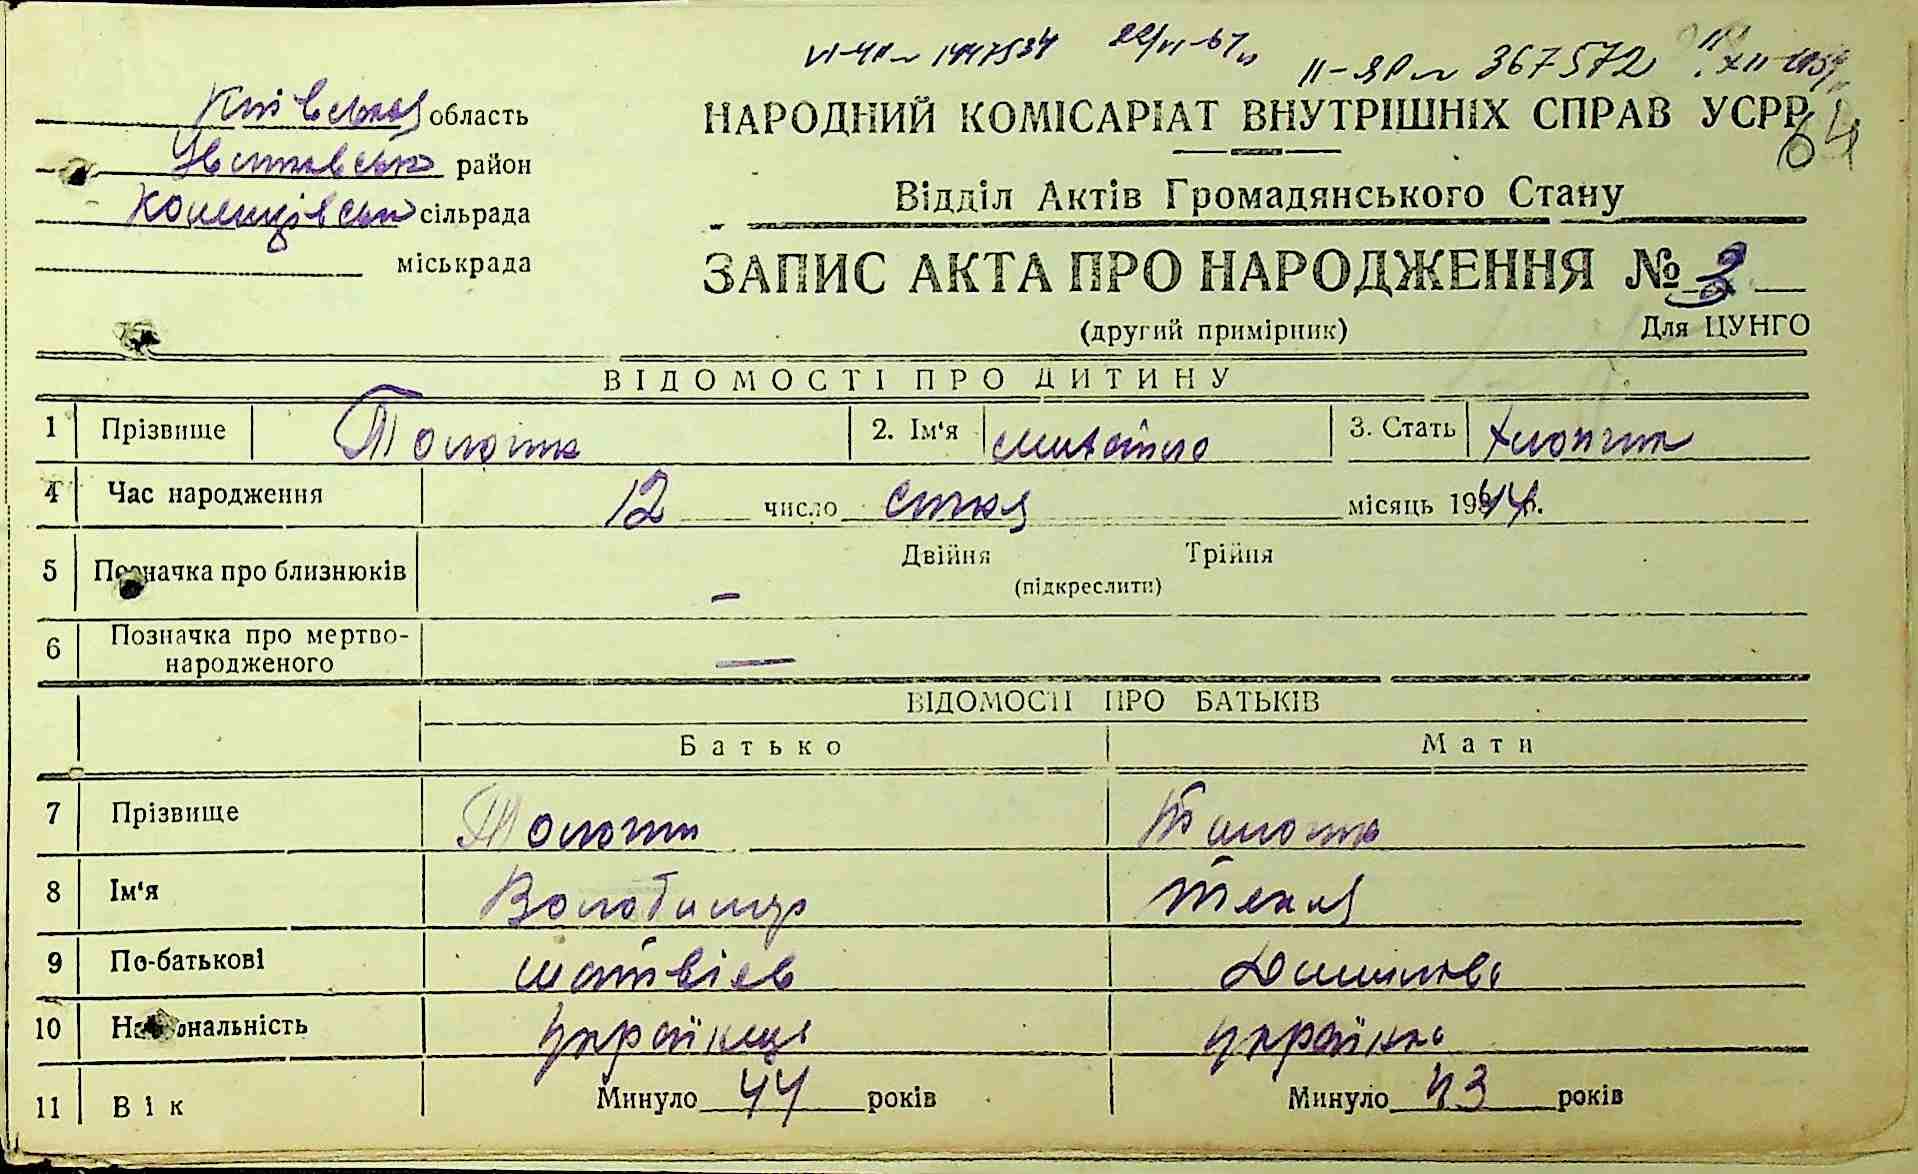 VI-ЧП № 1447534 22/VI-67 II-ЯР № 367572
Київська область
район
сільрада
міськрада
НАРОДНИЙ КОМІСАРІАТ ВНУТРІШНІХ СПРАВ УСРР
64
Відділ Актів Громадянського Стану
ЗАПИС АКТА ПРО НАРОДЖЕННЯ №
(другий примірник) Для ЦУНГО
ВІДОМОСТІ ПРО ДИТИНУ
1 Прізвище 2. Ім'я Михайло 3. Стать
4 Час народження 12 число січня місяць 1944р.
5 Позначка про близнюків — Двійня Трійня
(підкреслити)
6 Позначка про мертво-
народженого —
ВІДОМОСТІ ПРО БАТЬКІВ
Батько Мати
7 Прізвище
8 Ім'я Володимир Текля
9 По-батькові Матвієв
10 Національність українець українка
11 Вік Минуло 44 років Минуло 43 років